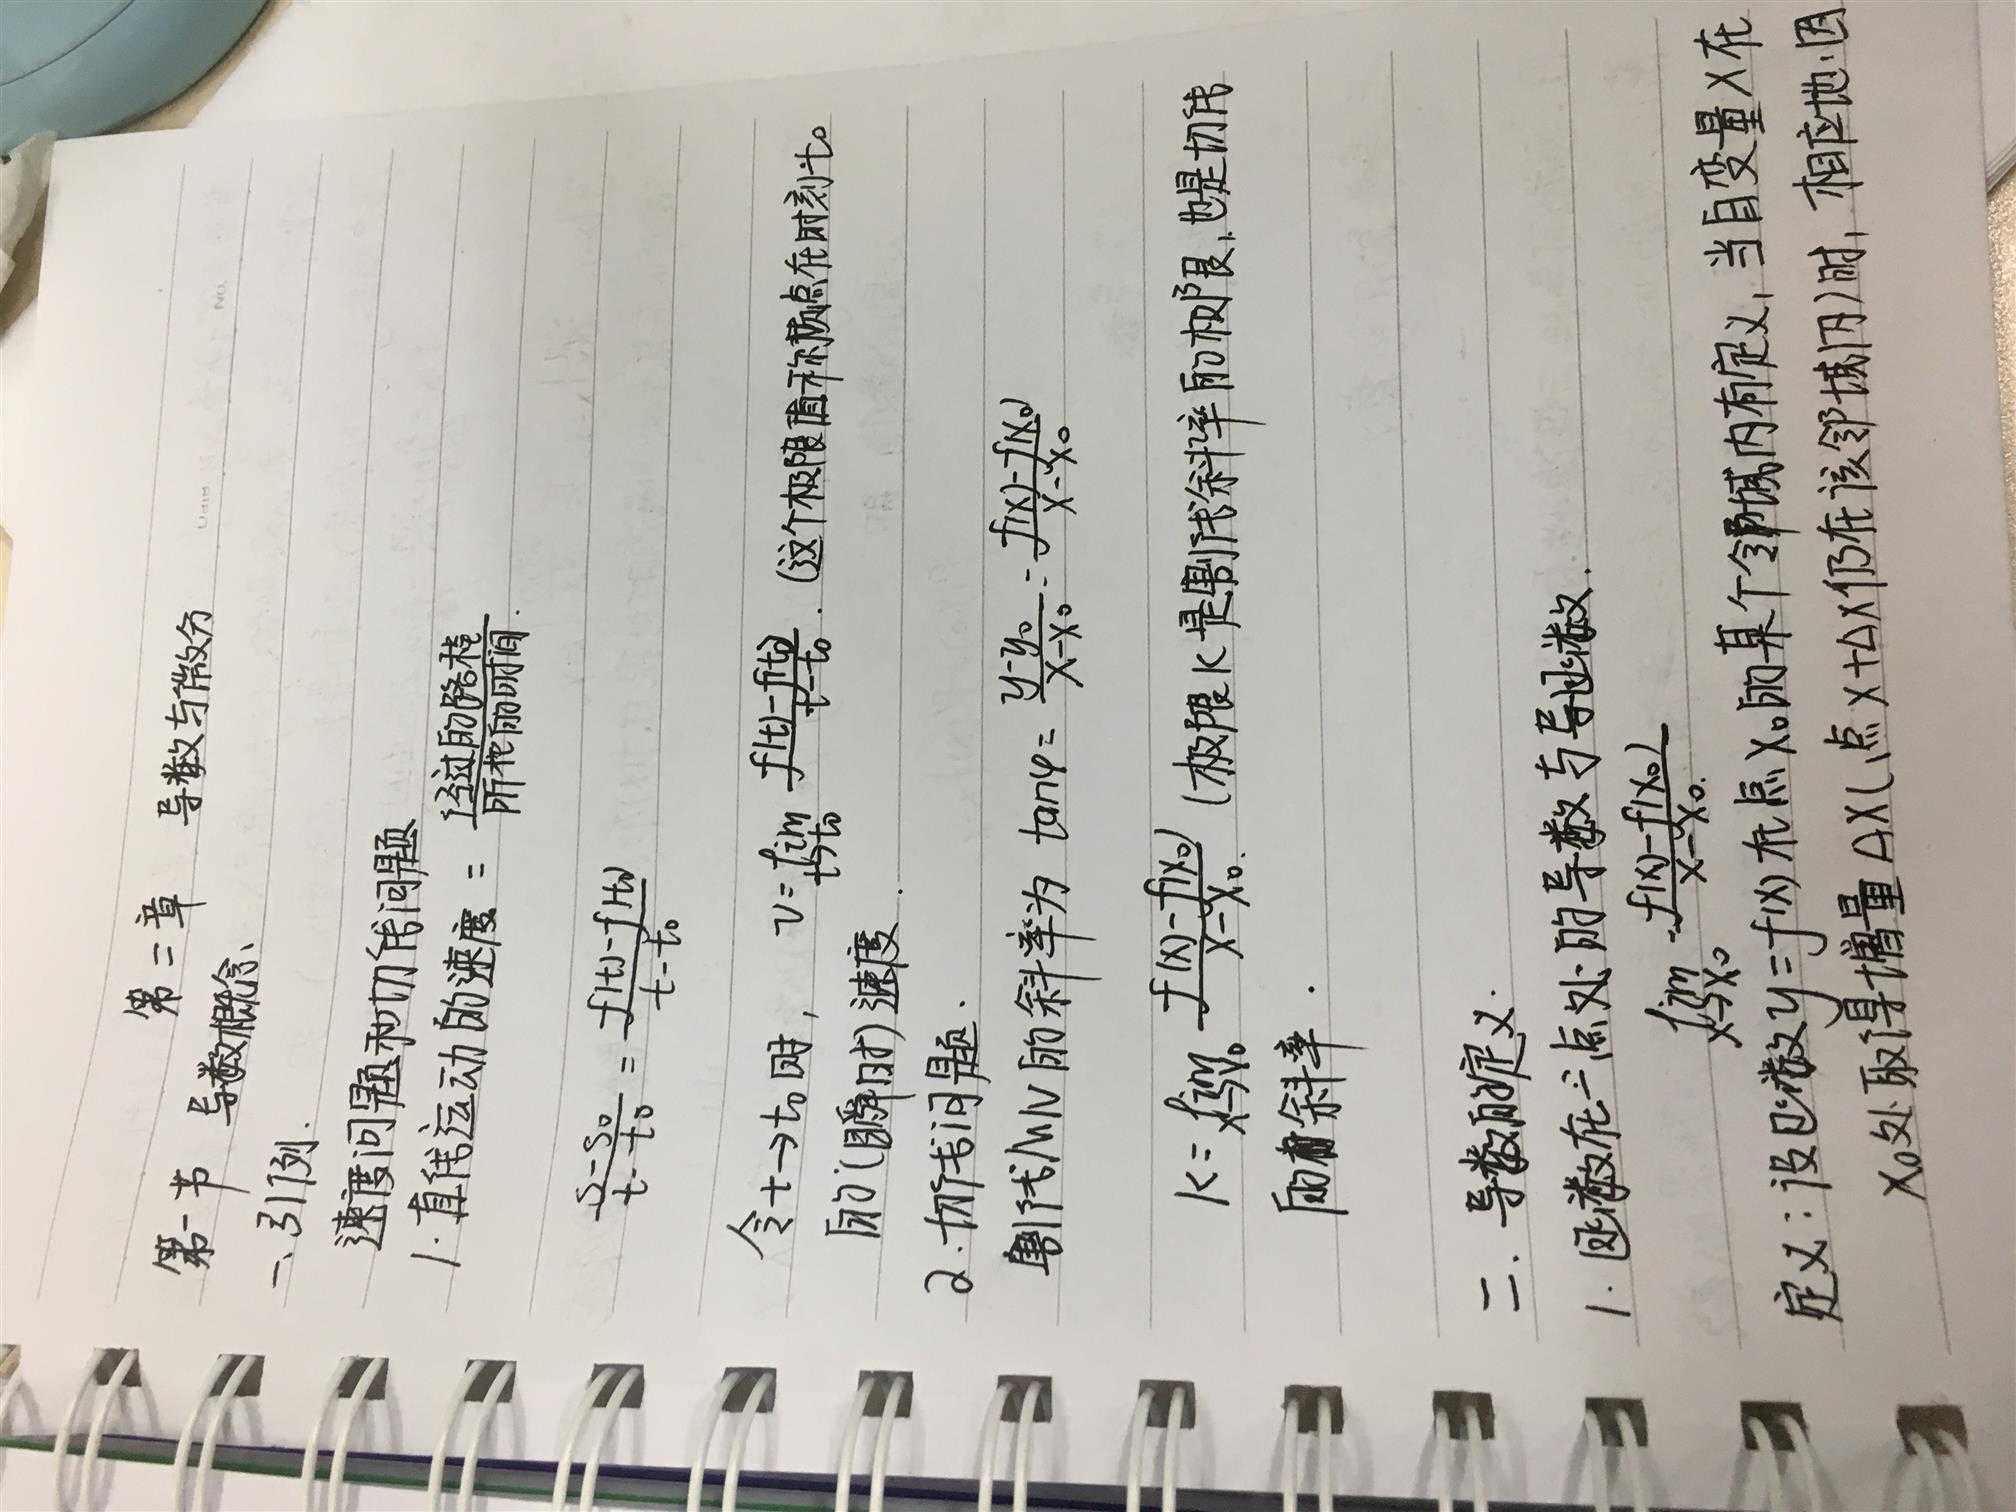 第二章 导数与微分
第一节 导数概念、
一、引例.
速度问题和切线问题
1.直线运动的速度 = 经过的路程/所花的时间.
(s-s₀)/(t-t₀) = (f(t)-f(t₀))/(t-t₀)
令t→t₀时, v=lim t→t₀ (f(t)-f(t₀))/(t-t₀). (这个极限值称质点在时刻t₀
的(瞬时)速度.
2.切线问题.
割线MN的斜率为 tanφ= (y-y₀)/(x-x₀) = (f(x)-f(x₀))/(x-x₀)
K= lim x→x₀ (f(x)-f(x₀))/(x-x₀). (极限K是割线斜率的极限,也是切线
的斜率.
二.导数的定义.
1.函数在一点处的导数与导函数.
lim x→x₀ (f(x)-f(x₀))/(x-x₀.)
定义:设函数y=f(x)在点x₀的某个邻域内有定义,当自变量x在
x₀处取得增量Δx(点x+Δx仍在该邻域内)时,相应地.因